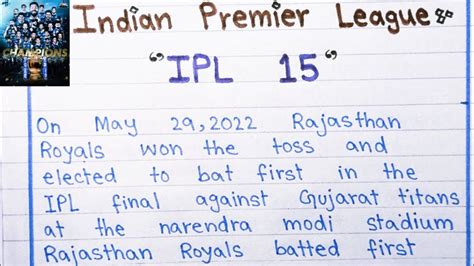 CHAMPIONS
Indian Premier League
"IPL 15"
On May 29,2022 Rajasthan
Royals won the toss and
elected to bat first in the
IPL final against Gujarat titans
at the narendra modi stadium
Rajasthan Royals batted first